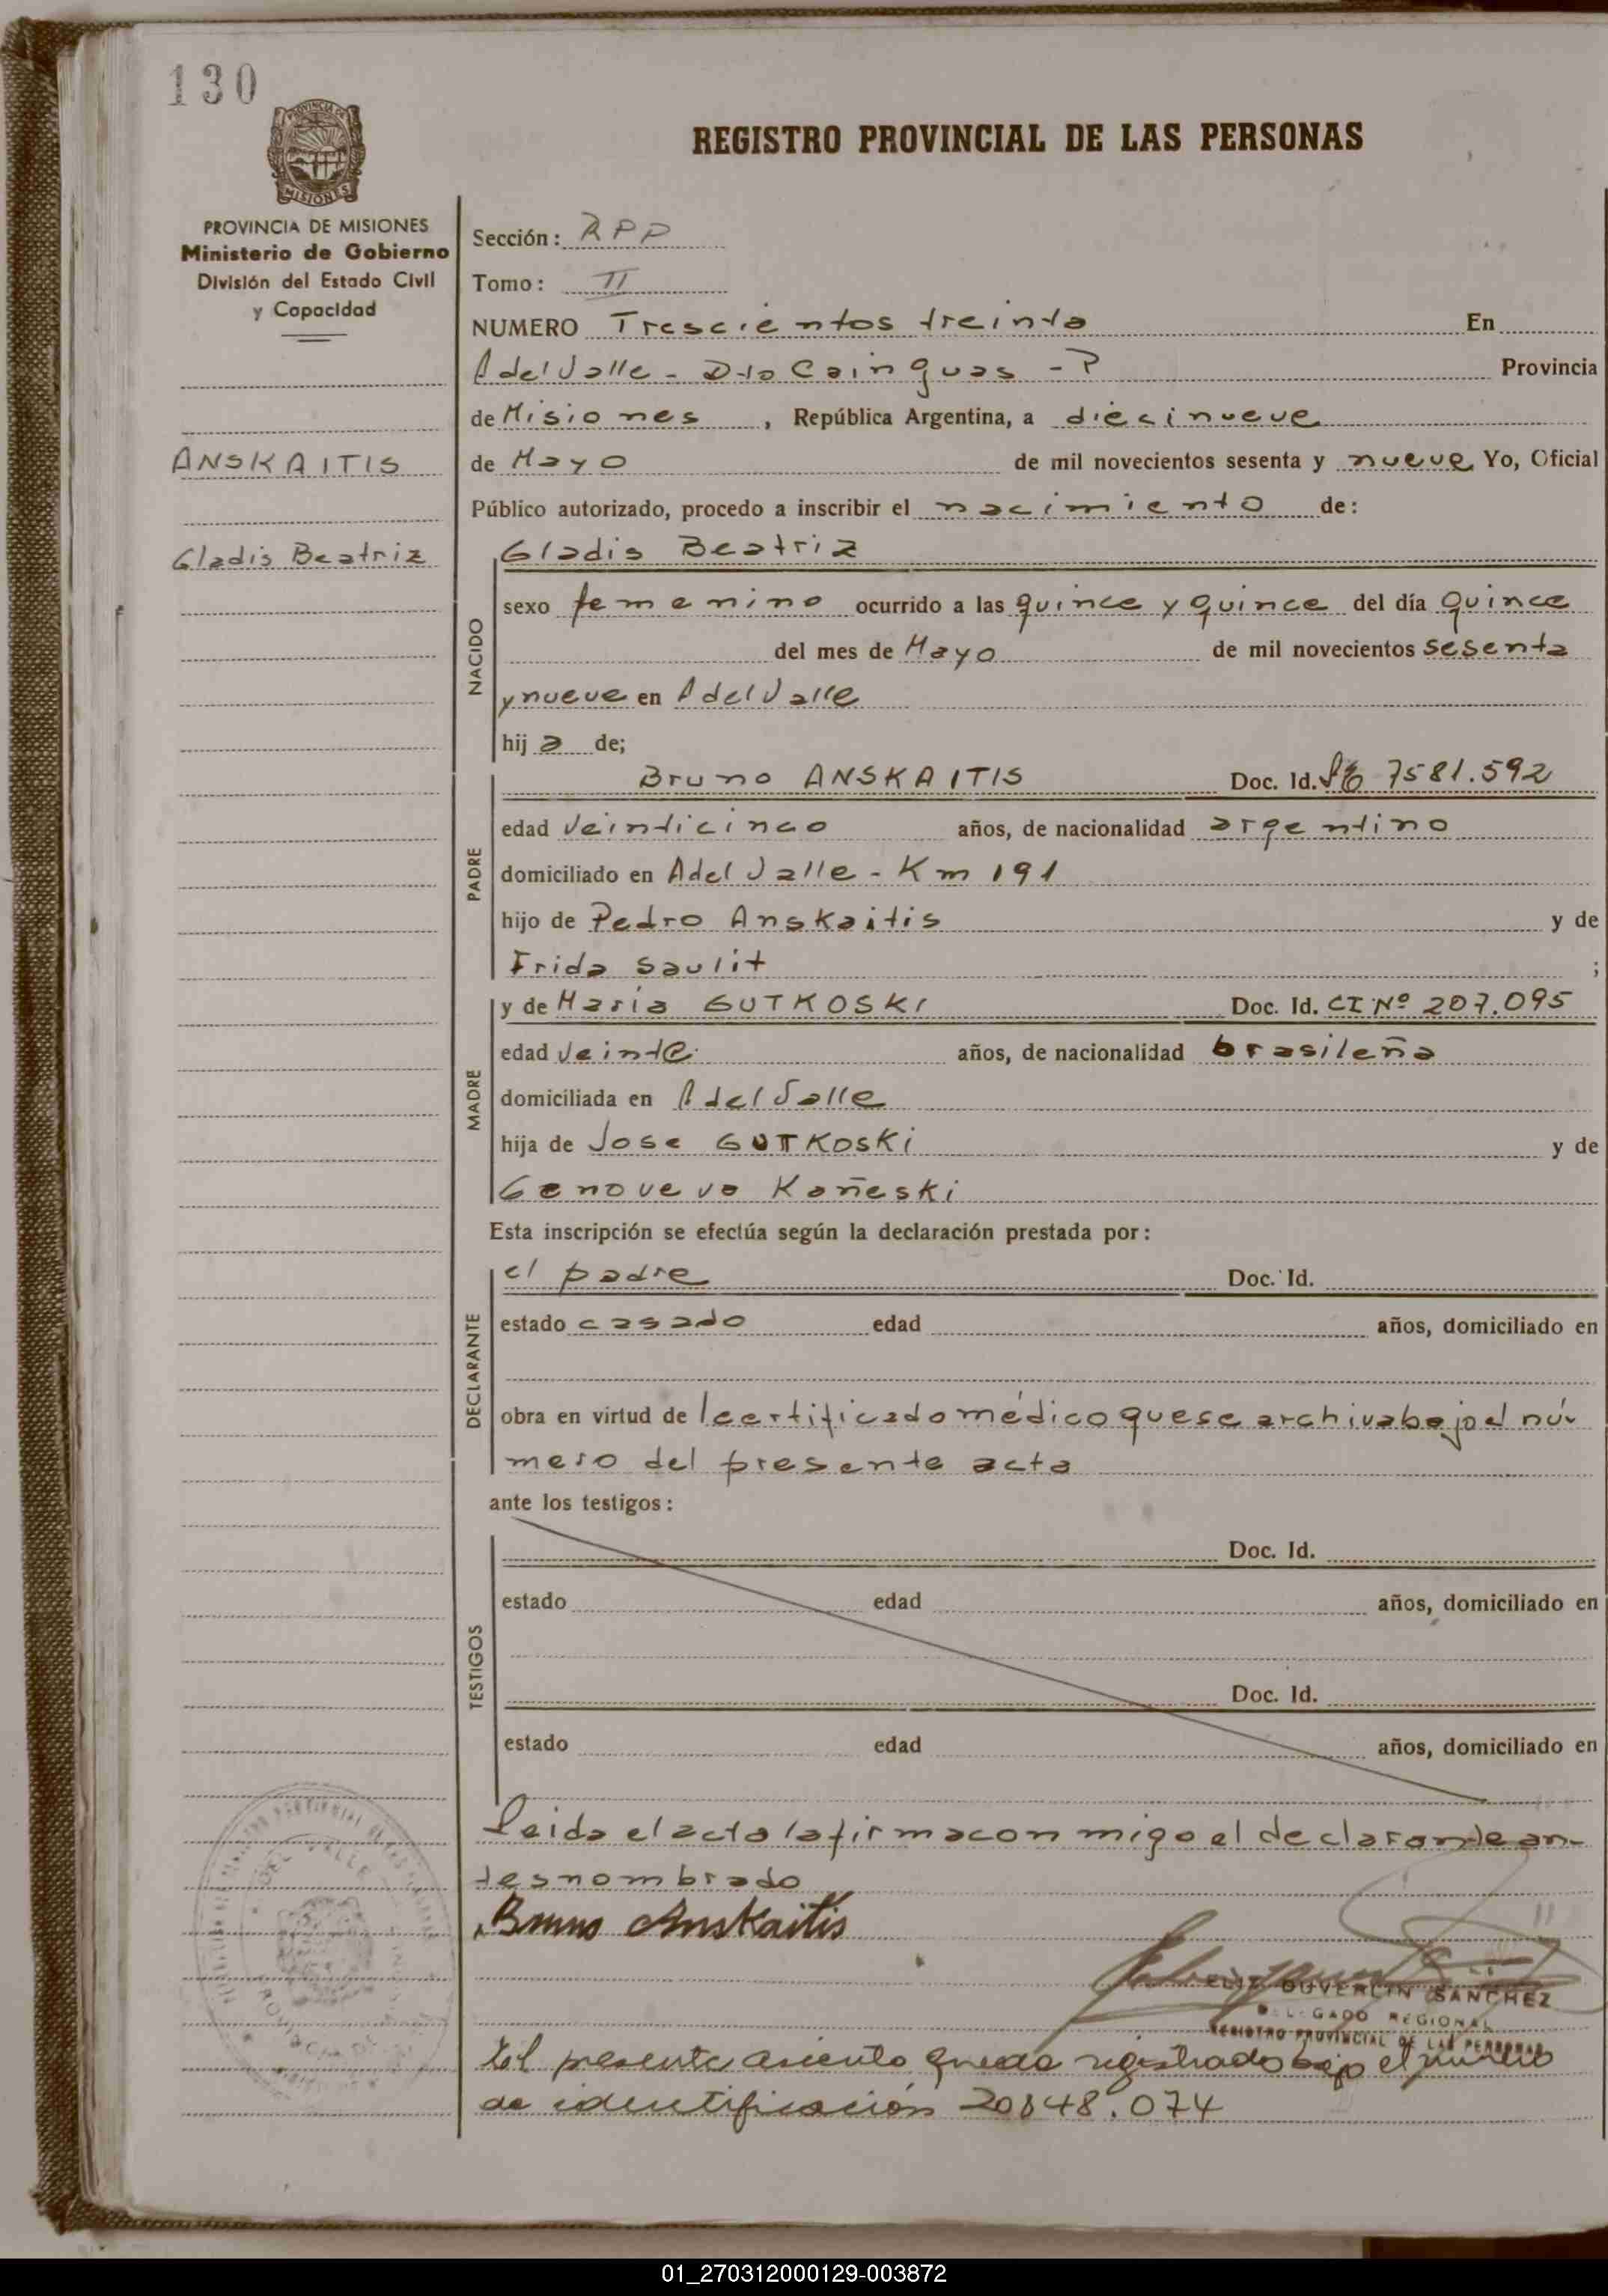 130
REGISTRO PROVINCIAL DE LAS PERSONAS
MISIONES
PROVINCIA DE MISIONES
Ministerio de Gobierno
División del Estado Civil
y Capacidad
ANSKAITIS
Gladis Beatriz
Sección: RPP
Tomo: II
NUMERO Trescientos treinta En
A del Valle - Dto Cainguas - P Provincia
de Misiones, República Argentina, a diecinueve
de Mayo de mil novecientos sesenta y nueve Yo, Oficial
Público autorizado, procedo a inscribir el nacimiento de:
Gladis Beatriz
NACIDO
sexo femenino ocurrido a las quince y quince del día quince
del mes de Mayo de mil novecientos sesenta
y nueve en A del Valle
hija de;
PADRE
Bruno ANSKAITIS Doc. Id. 7581.592
edad veinticinco años, de nacionalidad argentino
domiciliado en A del Valle - Km 191
hijo de Pedro Anskaitis y de
Frida Saulit ;
MADRE
y de Maria GUTKOSKI Doc. Id. CI Nº 207.095
edad veinte años, de nacionalidad brasileña
domiciliada en A del Valle
hija de Jose GUTKOSKI y de
Genoveva Kañeski
Esta inscripción se efectúa según la declaración prestada por:
DECLARANTE
el padre Doc. Id.
estado casado edad años, domiciliado en
obra en virtud de lcertificado médico que se archiva bajo el nú-
mero del presente acta
ante los testigos:
TESTIGOS
Doc. Id.
estado edad años, domiciliado en
Doc. Id.
estado edad años, domiciliado en
Leida el acta la firma con migo el declarante an-
tes nombrado
Bruno Anskaitis
DUVERLIN SANCHEZ
DELEGADO REGIONAL
REGISTRO PROVINCIAL DE LAS PERSONAS
El presente asiento queda registrado bajo el número
de identificación 20848.074
DEL VALLE
01_270312000129-003872